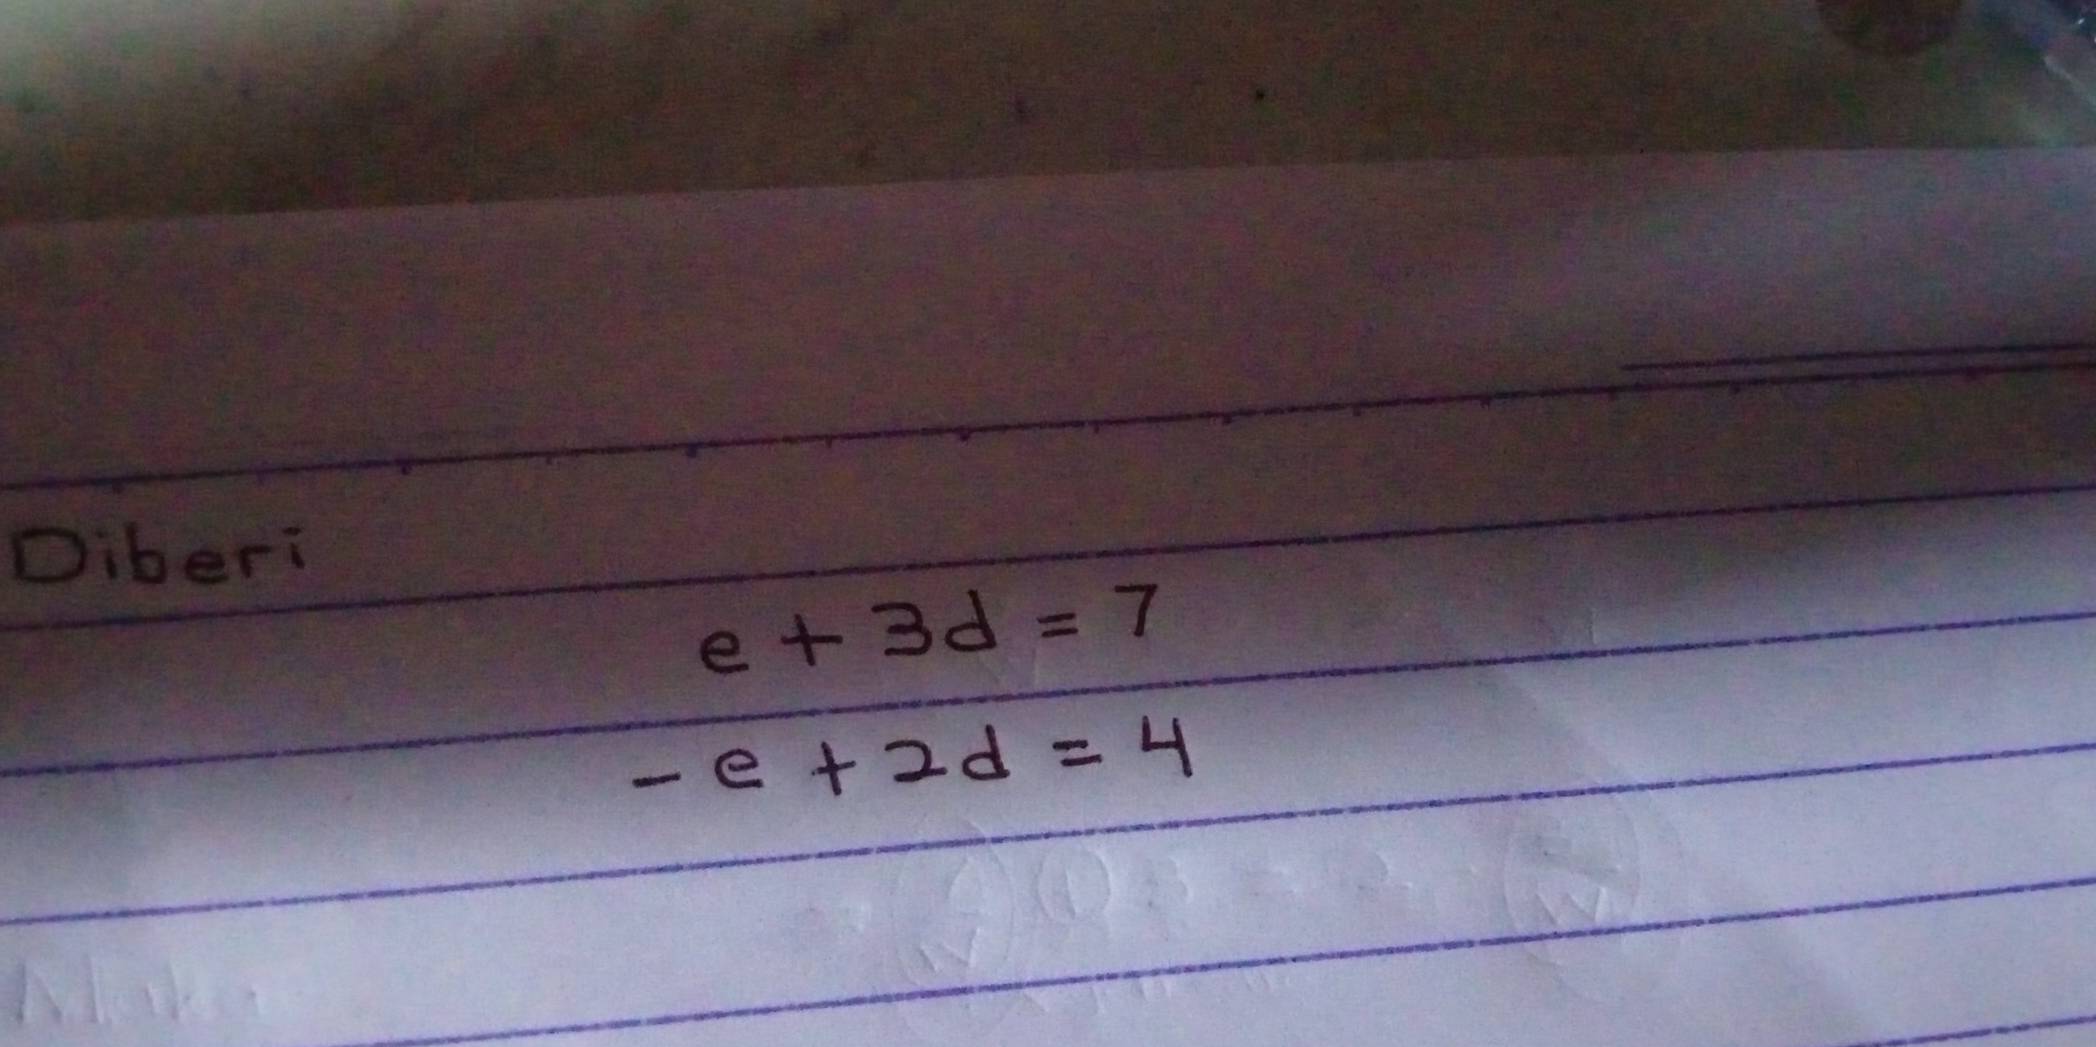 Diberi
e + 3d = 7
- e + 2d = 4